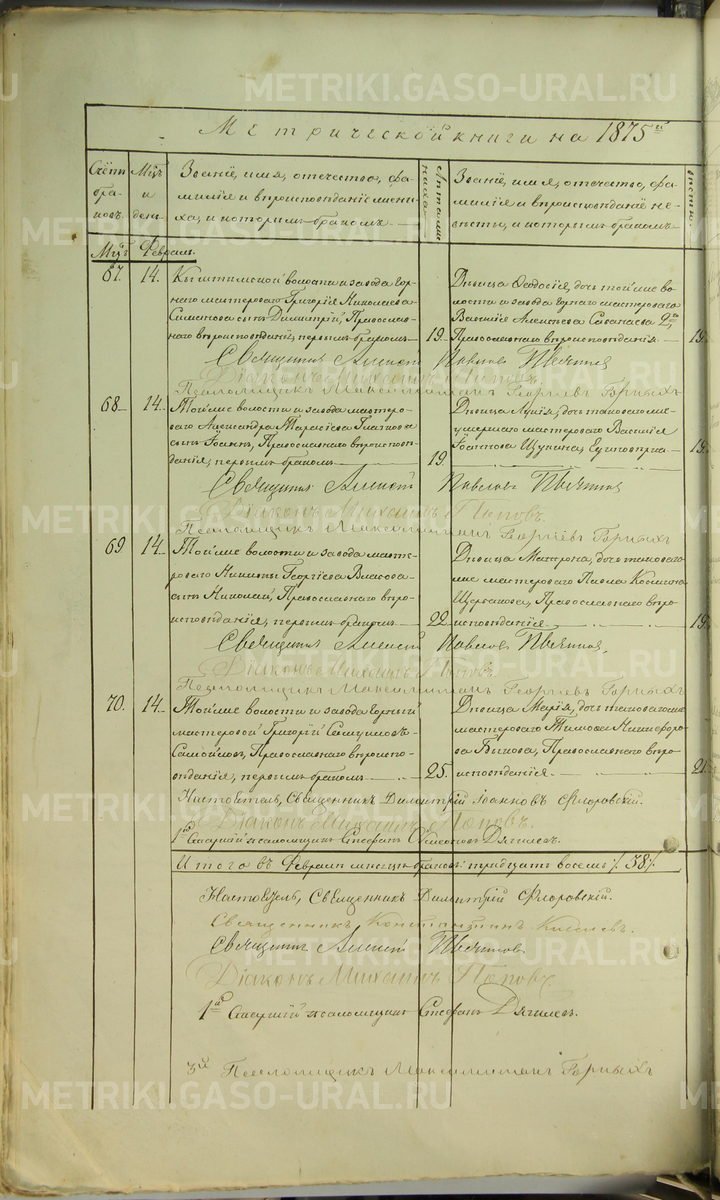 METRIKI.GASO-URAL.RU
Метрической книги на 1875й
Счетъ браковъ.
Мцъ и день.
Званіе, имя, отечество, фамилія и вѣроисповѣданіе жениха, и которымъ бракомъ.
Лѣта жениха
Званіе, имя, отечество, фамилія и вѣроисповѣданіе невѣсты, и которымъ бракомъ.
Мцъ Февраль.
67. 14.
волости и завода горнаго мастероваго Григорія Николаева
сынъ Димитрій, Православнаго вѣроисповѣданія, первымъ бракомъ
19.
Дѣвица Ѳеодосія, дочь той же волости и завода горнаго мастероваго
Василія Алексѣева 2я,
Православнаго вѣроисповѣданія.
Священникъ Алексѣй Павловъ
Діаконъ Михаилъ Поповъ.
Псаломщикъ Максимиліанъ Георгіевъ Горныхъ
68. 14.
Той же волости и завода мастероваго Александра Тарасіева
сынъ Іоаннъ, Православнаго вѣроисповѣданія, первымъ бракомъ
19.
Дѣвица дочь таковаго же умершаго мастероваго Василія
Щукина,
Священникъ Алексѣй Павловъ
Діаконъ Михаилъ Поповъ.
Псаломщикъ Максимиліанъ Георгіевъ Горныхъ
69. 14.
Той же волости и завода мастероваго Никиты Георгіева Власова
сынъ Николай, Православнаго вѣроисповѣданія, первымъ бракомъ
22.
Дѣвица Матрона, дочь таковаго же мастероваго Павла Косьмина
Щербакова, Православнаго вѣроисповѣданія
19.
Священникъ Алексѣй Павловъ
Діаконъ Михаилъ Поповъ
Псаломщикъ Максимиліанъ Георгіевъ Горныхъ
70. 14.
Той же волости и завода горный мастеровой Григорій Самуиловъ
Самойловъ, Православнаго вѣроисповѣданія, первымъ бракомъ
25.
Дѣвица Марія, дочь таковаго же мастероваго Тимоѳея Никифорова
Быкова, Православнаго вѣроисповѣданія
21.
Настоятель, Священникъ Димитрій Іоанновъ Флоровскій.
Діаконъ Михаилъ Поповъ.
1й Старшій псаломщикъ Стефанъ Дягилевъ.
Итого въ Февралѣ мѣсяцѣ браковъ: тридцать восемь /. 38 /.
Настоятель, Священникъ Димитрій Флоровскій.
Священникъ Константинъ
Священникъ Алексѣй
Діаконъ Михаилъ Поповъ
1й Старшій псаломщикъ Стефанъ Дягилевъ.
3й Псаломщикъ Максимиліанъ Горныхъ